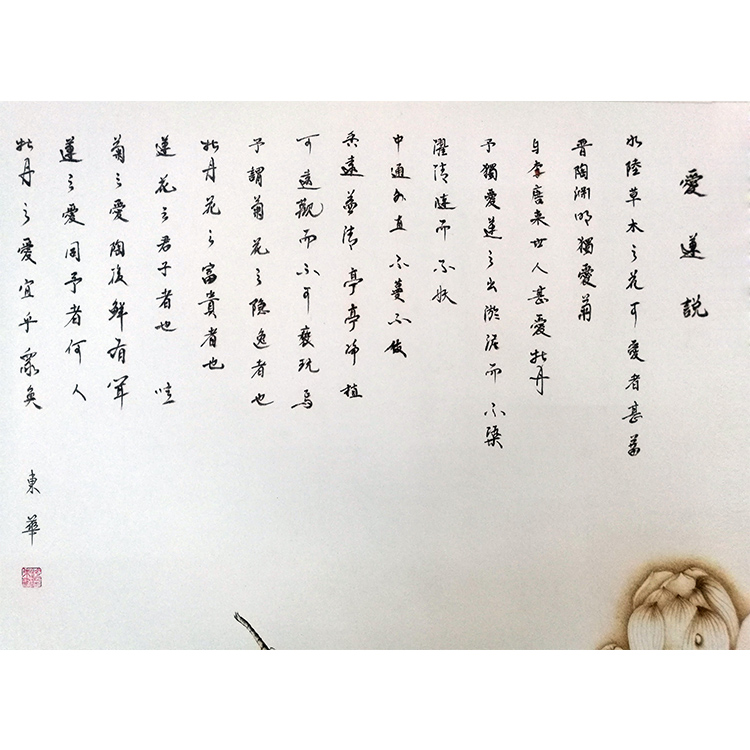 愛蓮說
水陸草木之花可愛者甚蕃
晉陶淵明獨愛菊
自李唐来世人甚愛牡丹
予獨愛蓮之出淤泥而不染
濯清漣而不妖
中通外直不蔓不枝
香遠益清亭亭净植
可遠觀而不可褻玩焉
予謂菊花之隐逸者也
牡丹花之富貴者也
蓮花之君子者也 噫
菊之愛陶後鮮有聞
蓮之愛同予者何人
牡丹之愛宜乎衆矣
東華